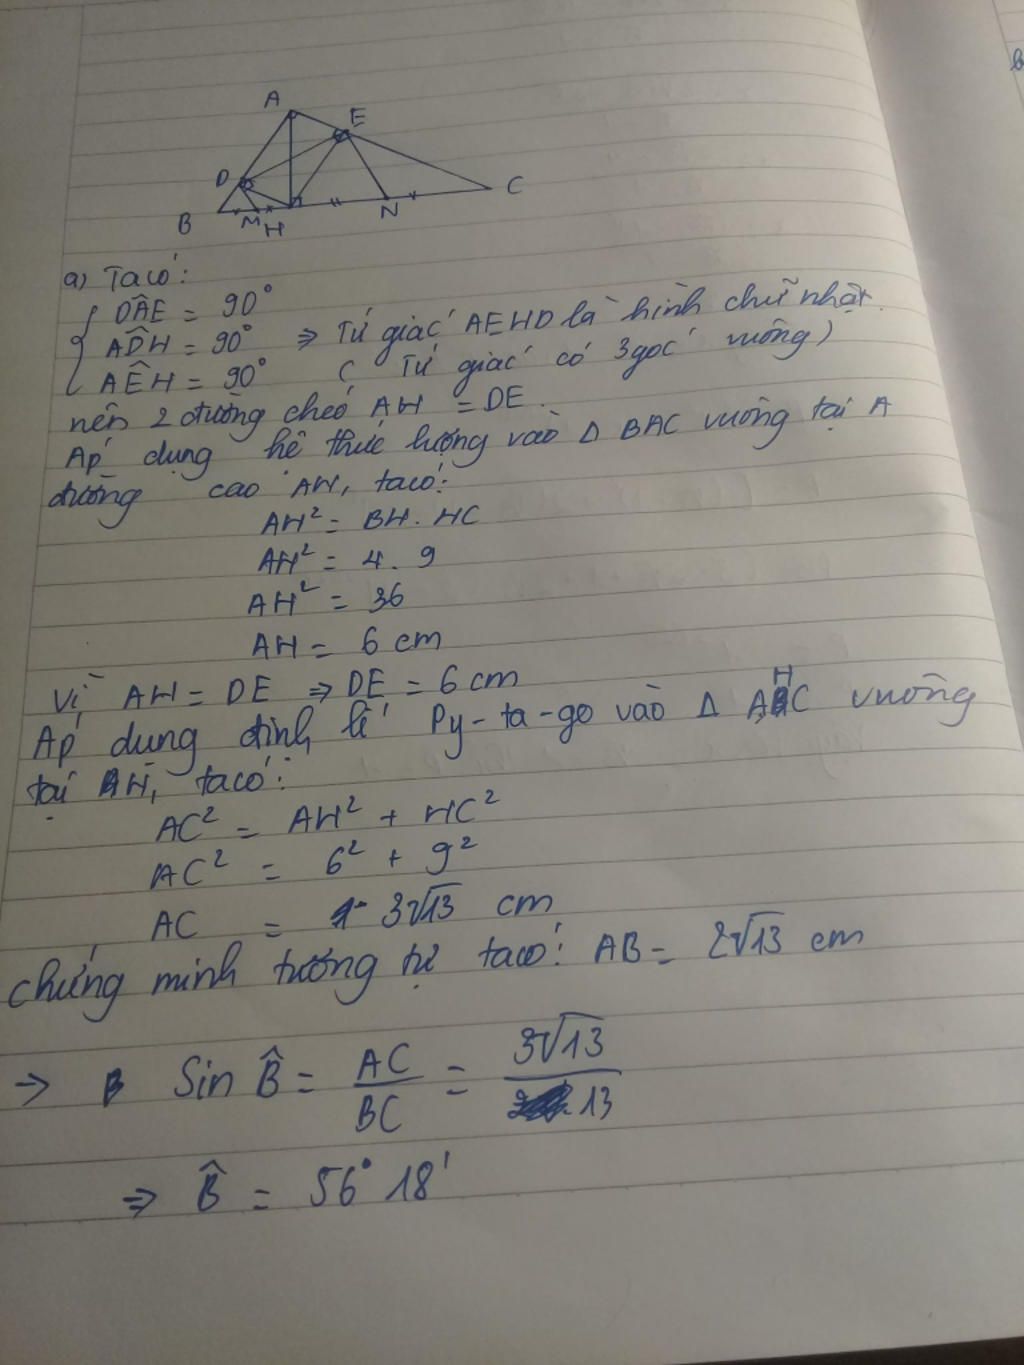 A
E
D
B
M
H
N
C
a) Ta có:
DÂE = 90°
AD̂H = 90° ⇒ Tứ giác AEHD là hình chữ nhật
AÊH = 90° ( Tứ giác có 3 góc vuông)
nên 2 đường chéo AH = DE.
Áp dụng hệ thức lượng vào Δ BAC vuông tại A
đường cao AH, ta có:
AH² = BH. HC
AH² = 4. 9
AH² = 36
AH = 6 cm
Vì AH = DE ⇒ DE = 6 cm
Áp dụng định lí Py-ta-go vào Δ AHC vuông
tại H, ta có:
AC² = AH² + HC²
AC² = 6² + 9²
AC = 3√13 cm
chứng minh tương tự ta có: AB = 2√13 cm
→ Sin B̂ = AC/BC = 3√13/13
⇒ B̂ = 56° 18'